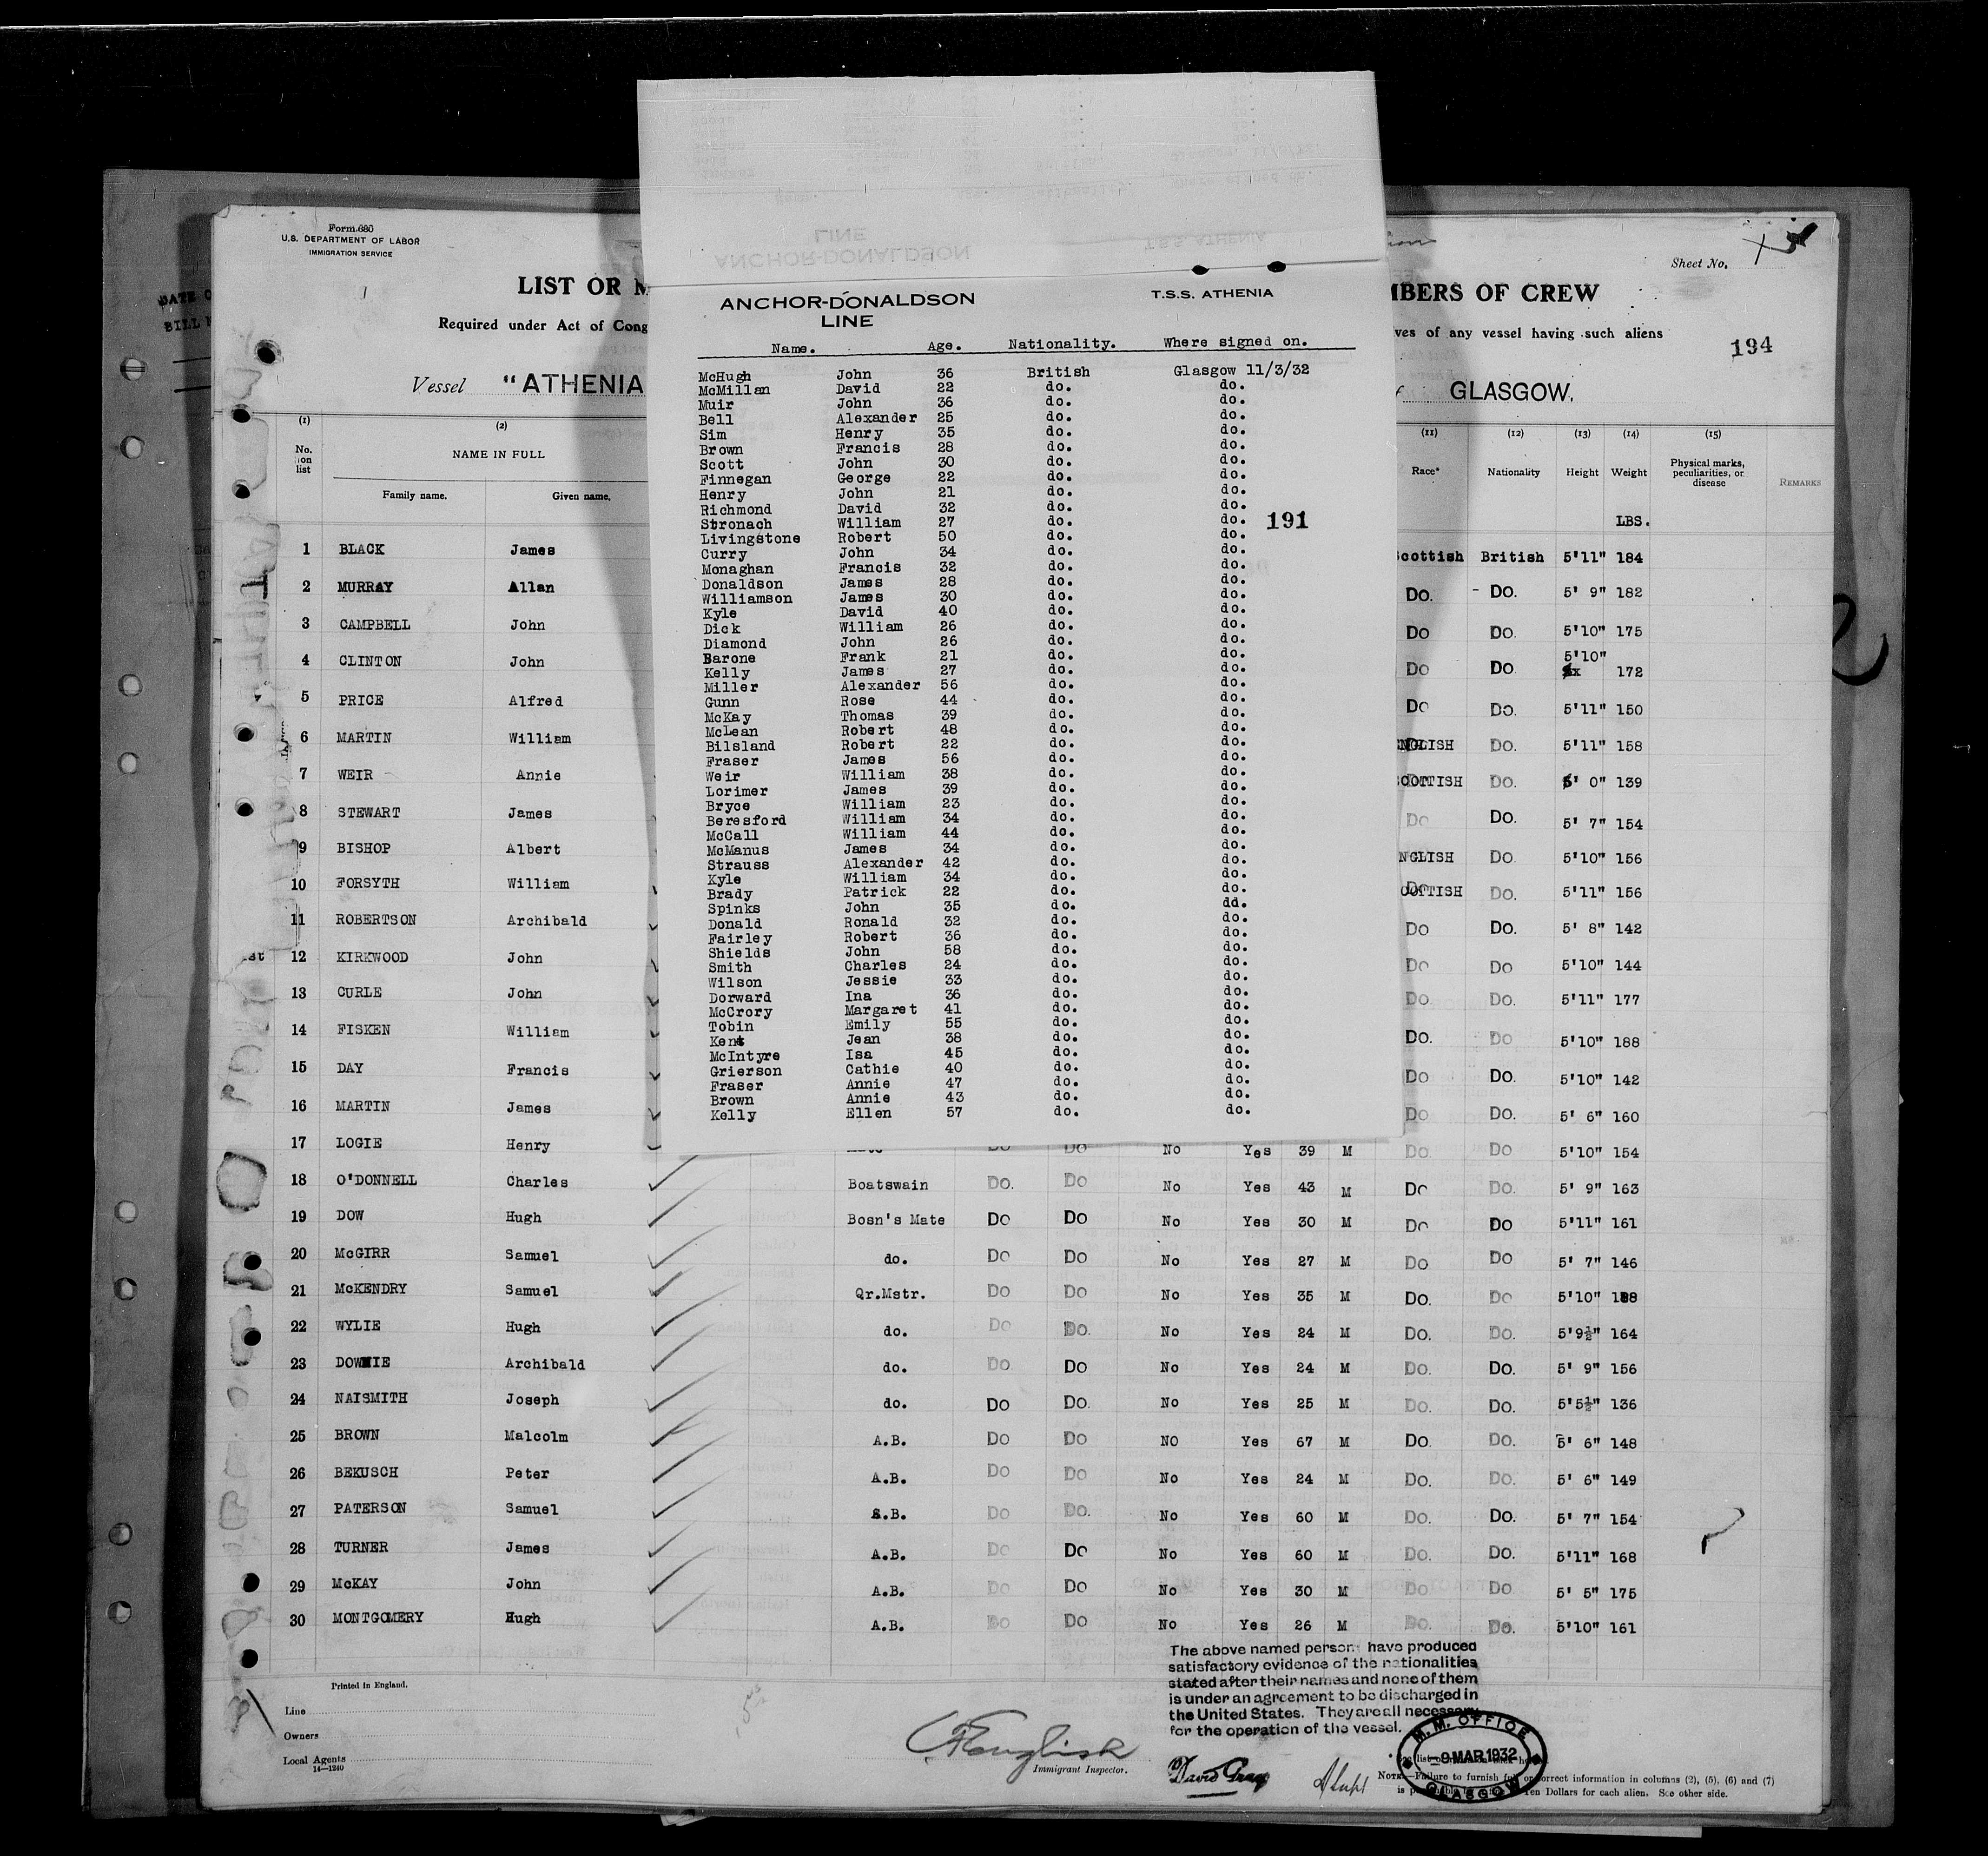 Form 680
U.S. DEPARTMENT OF LABOR
IMMIGRATION SERVICE
Sheet No.
LIST OR
MBERS OF CREW
Required under Act of Cong
ves of any vessel having such aliens
194
Vessel "ATHENIA
GLASGOW.
ANCHOR-DONALDSON
LINE
T.S.S. ATHENIA
Name. Age. Nationality. Where signed on.
McHugh John 36 British Glasgow 11/3/32
McMillan David 22 do. do.
Muir John 36 do. do.
Bell Alexander 25 do. do.
Sim Henry 35 do. do.
Brown Francis 28 do. do.
Scott John 30 do. do.
Finnegan George 22 do. do.
Henry John 21 do. do.
Richmond David 32 do. do.
Stronach William 27 do. do. 191
Livingstone Robert 50 do. do.
Curry John 34 do. do.
Monaghan Francis 32 do. do.
Donaldson James 28 do. do.
Williamson James 30 do. do.
Kyle David 40 do. do.
Dick William 26 do. do.
Diamond John 26 do. do.
Barone Frank 21 do. do.
Kelly James 27 do. do.
Miller Alexander 56 do. do.
Gunn Rose 44 do. do.
McKay Thomas 39 do. do.
McLean Robert 48 do. do.
Bilsland Robert 22 do. do.
Fraser James 56 do. do.
Weir William 38 do. do.
Lorimer James 39 do. do.
Bryce William 23 do. do.
Beresford William 34 do. do.
McCall William 44 do. do.
McManus James 34 do. do.
Strauss Alexander 42 do. do.
Kyle William 34 do. do.
Brady Patrick 22 do. do.
Spinks John 35 do. dd.
Donald Ronald 32 do. do.
Fairley Robert 36 do. do.
Shields John 58 do. do.
Smith Charles 24 do. do.
Wilson Jessie 33 do. do.
Dorward Ina 36 do. do.
McCrory Margaret 41 do. do.
Tobin Emily 55 do. do.
Kent Jean 38 do. do.
McIntyre Isa 45 do. do.
Grierson Cathie 40 do. do.
Fraser Annie 47 do. do.
Brown Annie 43 do. do.
Kelly Ellen 57 do. do.
(1) (2) (11) (12) (13) (14) (15)
No. on list NAME IN FULL Race* Nationality Height Weight Physical marks, peculiarities, or disease REMARKS
Family name. Given name.
LBS.
1 BLACK James Scottish British 5'11" 184
2 MURRAY Allan Do. Do. 5' 9" 182
3 CAMPBELL John Do Do. 5'10" 175
4 CLINTON John Do Do 5'10" 172
5 PRICE Alfred Do Do. 5'11" 150
6 MARTIN William ENGLISH Do. 5'11" 158
7 WEIR Annie SCOTTISH Do. 5' 0" 139
8 STEWART James Do Do. 5' 7" 154
9 BISHOP Albert ENGLISH Do 5'10" 156
10 FORSYTH William SCOTTISH Do. 5'11" 156
11 ROBERTSON Archibald Do Do. 5' 8" 142
12 KIRKWOOD John Do Do 5'10" 144
13 CURLE John Do. Do. 5'11" 177
14 FISKEN William Do. Do 5'10" 188
15 DAY Francis Do Do. 5'10" 142
16 MARTIN James Do Do. 5' 6" 160
17 LOGIE Henry Do Do No Yes 39 M Do. Do 5'10" 154
18 O'DONNELL Charles Boatswain Do. Do No Yes 43 M Do Do. 5' 9" 163
19 DOW Hugh Bosn's Mate Do Do No Yes 30 M Do Do 5'11" 161
20 McGIRR Samuel do. Do Do No Yes 27 M Do Do 5' 7" 146
21 McKENDRY Samuel Qr.Mstr. Do Do No Yes 35 M Do. Do 5'10" 188
22 WYLIE Hugh do. Do Do. No Yes 24 M Do. Do. 5'9½" 164
23 DOWNIE Archibald do. Do Do No Yes 24 M Do. Do. 5' 9" 156
24 NAISMITH Joseph do. Do Do. No Yes 25 M Do. Do. 5'5½" 136
25 BROWN Malcolm A.B. Do Do NO Yes 67 M Do. Do. 5' 6" 148
26 BEKUSCH Peter A.B. Do Do No Yes 24 M Do. Do. 5' 6" 149
27 PATERSON Samuel A.B. Do Do. No Yes 60 M Do. Do. 5' 7" 154
28 TURNER James A.B. Do Do No Yes 60 M Do. Do. 5'11" 168
29 McKAY John A.B. Do Do No Yes 30 M Do Do 5' 5" 175
30 MONTGOMERY Hugh A.B. Do Do No Yes 26 M Do. Do. 5'10" 161
The above named person have produced
satisfactory evidence of the nationalities
stated after their names and none of them
is under an agreement to be discharged in
the United States. They are all necessary
for the operation of the vessel.
Printed in England.
Line
Owners
Local Agents
14—1240
English
Immigrant Inspector.
David Gray
M.M. OFFICE
-9 MAR 1932
GLASGOW
NOTE.—Failure to furnish full or correct information in columns (2), (5), (6) and (7)
is Ten Dollars for each alien. See other side.